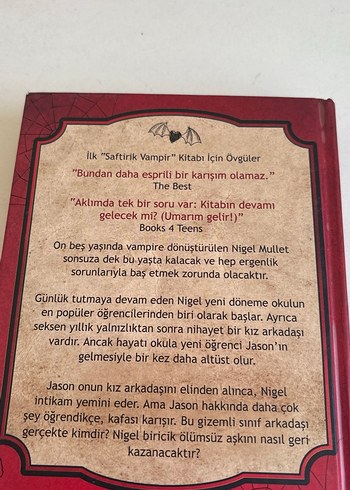 İlk "Saftirik Vampir" Kitabı İçin Övgüler
"Bundan daha esprili bir karışım olamaz."
The Best
"Aklımda tek bir soru var: Kitabın devamı
gelecek mi? (Umarım gelir!)"
Books 4 Teens
On beş yaşında vampire dönüştürülen Nigel Mullet
sonsuza dek bu yaşta kalacak ve hep ergenlik
sorunlarıyla baş etmek zorunda olacaktır.
Günlük tutmaya devam eden Nigel yeni döneme okulun
en popüler öğrencilerinden biri olarak başlar. Ayrıca
seksen yıllık yalnızlıktan sonra nihayet bir kız arkadaşı
vardır. Ancak hayatı okula yeni öğrenci Jason'ın
gelmesiyle bir kez daha altüst olur.
Jason onun kız arkadaşını elinden alınca, Nigel
intikam yemini eder. Ama Jason hakkında daha çok
şey öğrendikçe, kafası karışır. Bu gizemli sınıf arkadaşı
gerçekte kimdir? Nigel biricik ölümsüz aşkını nasıl geri
kazanacaktır?